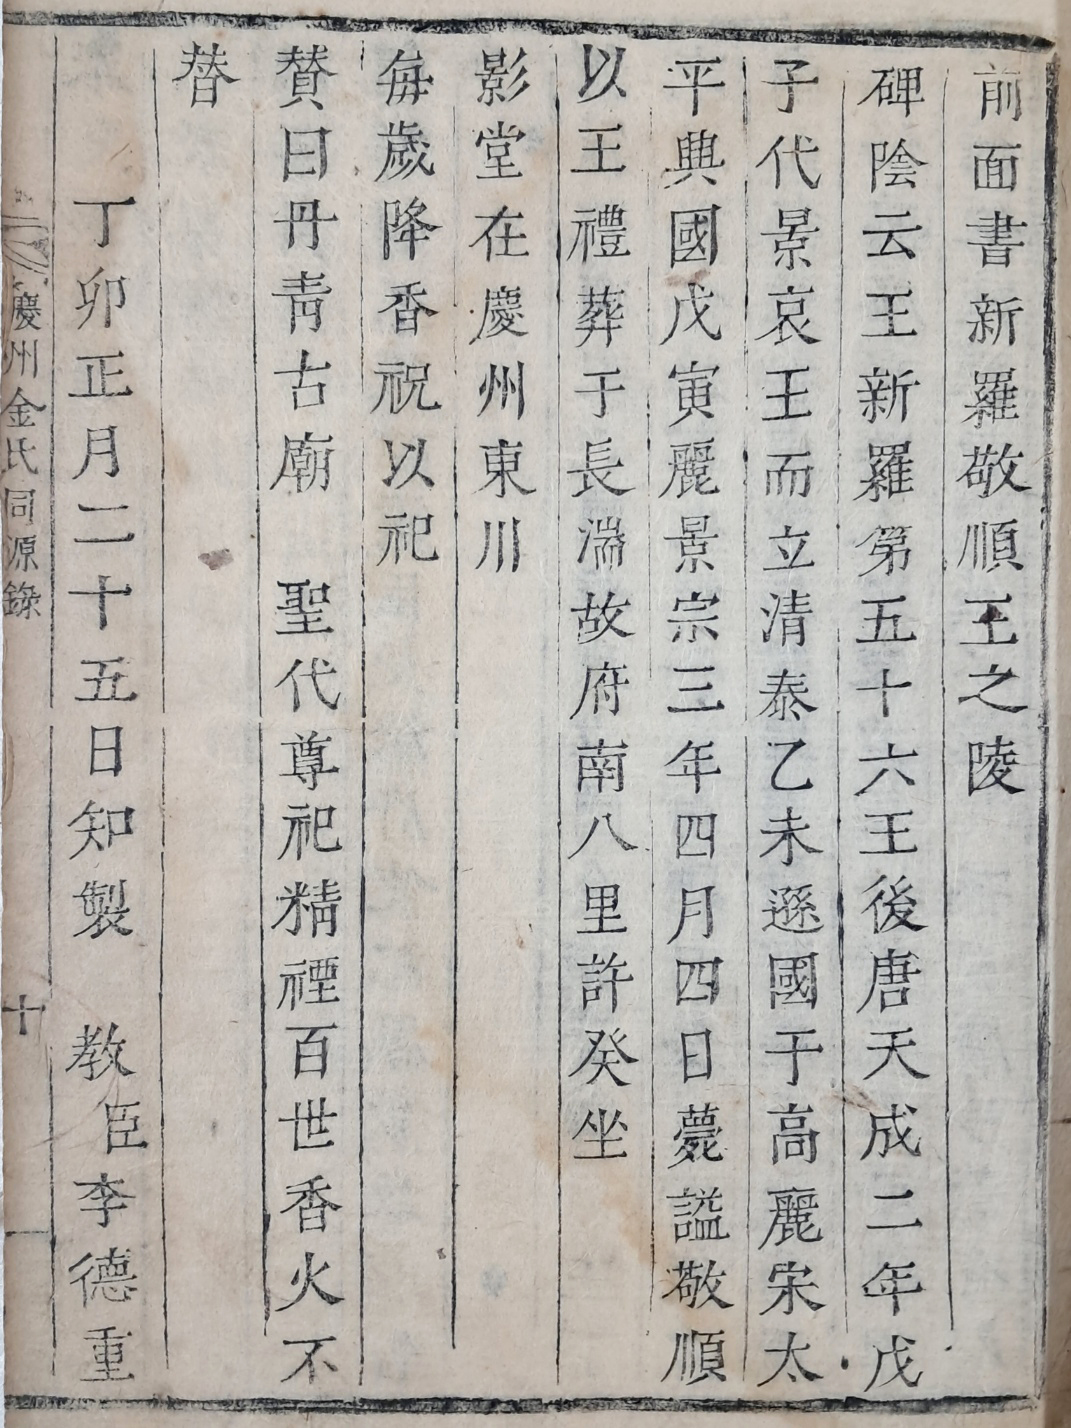 前面書新羅敬順王之陵
碑陰云王新羅第五十六王後唐天成二年戊
子代景哀王而立清泰乙未遜國于高麗宋太
平興國戊寅麗景宗三年四月四日薨謚敬順
以王禮葬于長湍故府南八里許癸坐
影堂在慶州東川
每歲降香祝以祀
賛曰丹靑古廟 聖代尊祀精禋百世香火不
替
丁卯正月二十五日知製 教臣李德重
慶州金氏同源錄 十